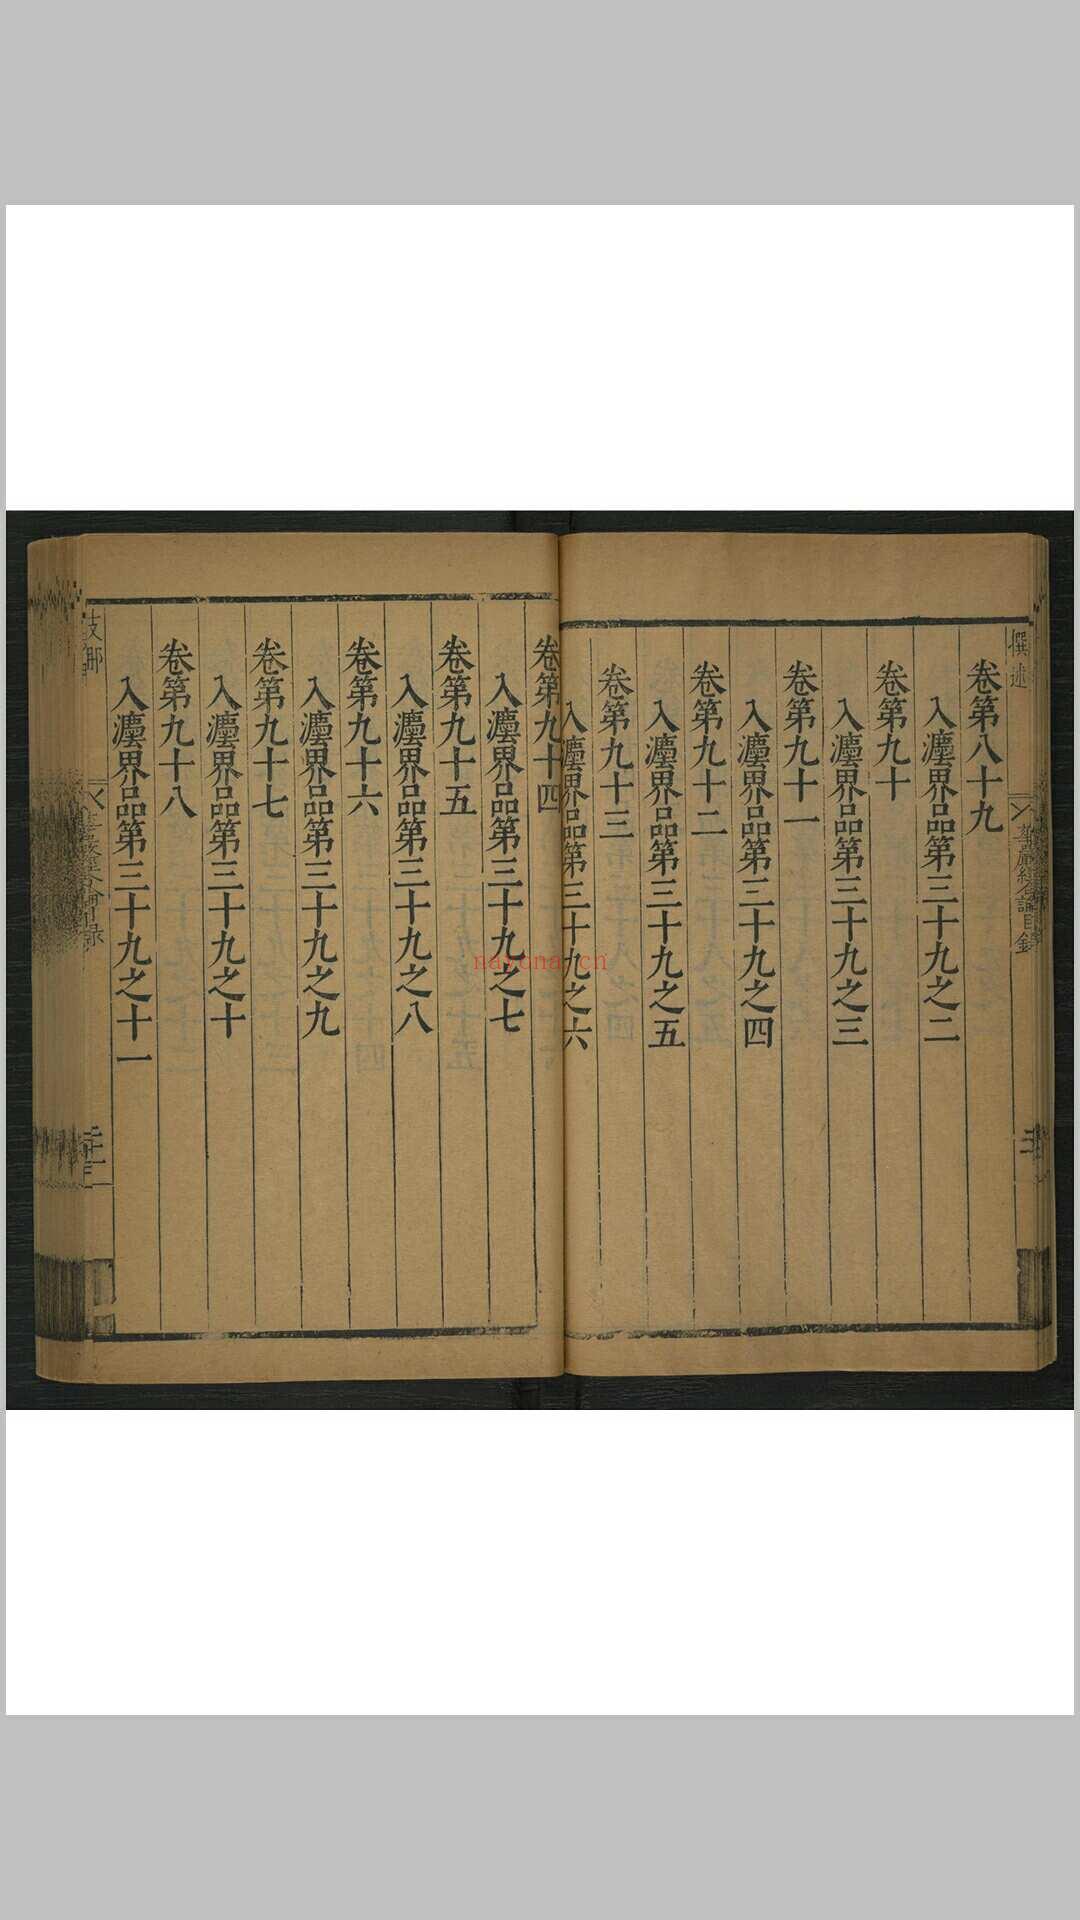 撰述
華嚴經合論目錄
卷第八十九
入灋界品第三十九之二
卷第九十
入灋界品第三十九之三
卷第九十一
入灋界品第三十九之四
卷第九十二
入灋界品第三十九之五
卷第九十三
入灋界品第三十九之六
卷第九十四
入灋界品第三十九之七
卷第九十五
入灋界品第三十九之八
卷第九十六
入灋界品第三十九之九
卷第九十七
入灋界品第三十九之十
卷第九十八
入灋界品第三十九之十一
nayona.cn